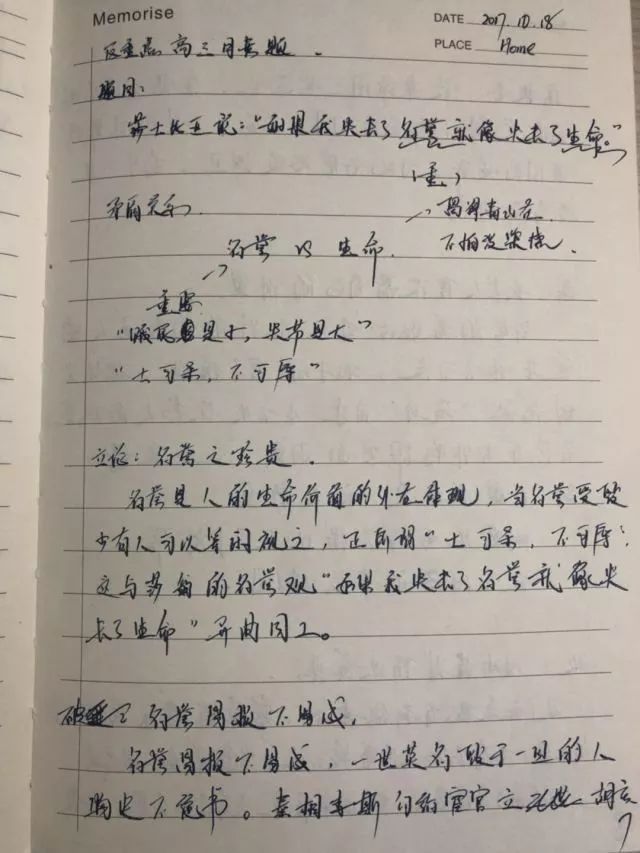 Memorise
DATE 2017.10.18
PLACE Home
高三月考题.
题目:
莎士比亚说:"如果我失去了名誉就像失去了生命。"
(重)
矛盾关系 留得青山在
不怕没柴烧.
名誉 vs 生命.
重要
"饿死事小,失节事大"
"士可杀,不可辱"
立论:名誉之珍贵.
名誉是人的生命价值的外在体现,当名誉受毁
少有人可以等闲视之,正所谓"士可杀,不可辱",
这与莎翁的名誉观"如果我失去了名誉就像失
去了生命"异曲同工。
名誉易损不易成,
名誉易损不易成,一世英名毁于一旦的人
史不绝书。秦相李斯勾结宦官立 胡亥